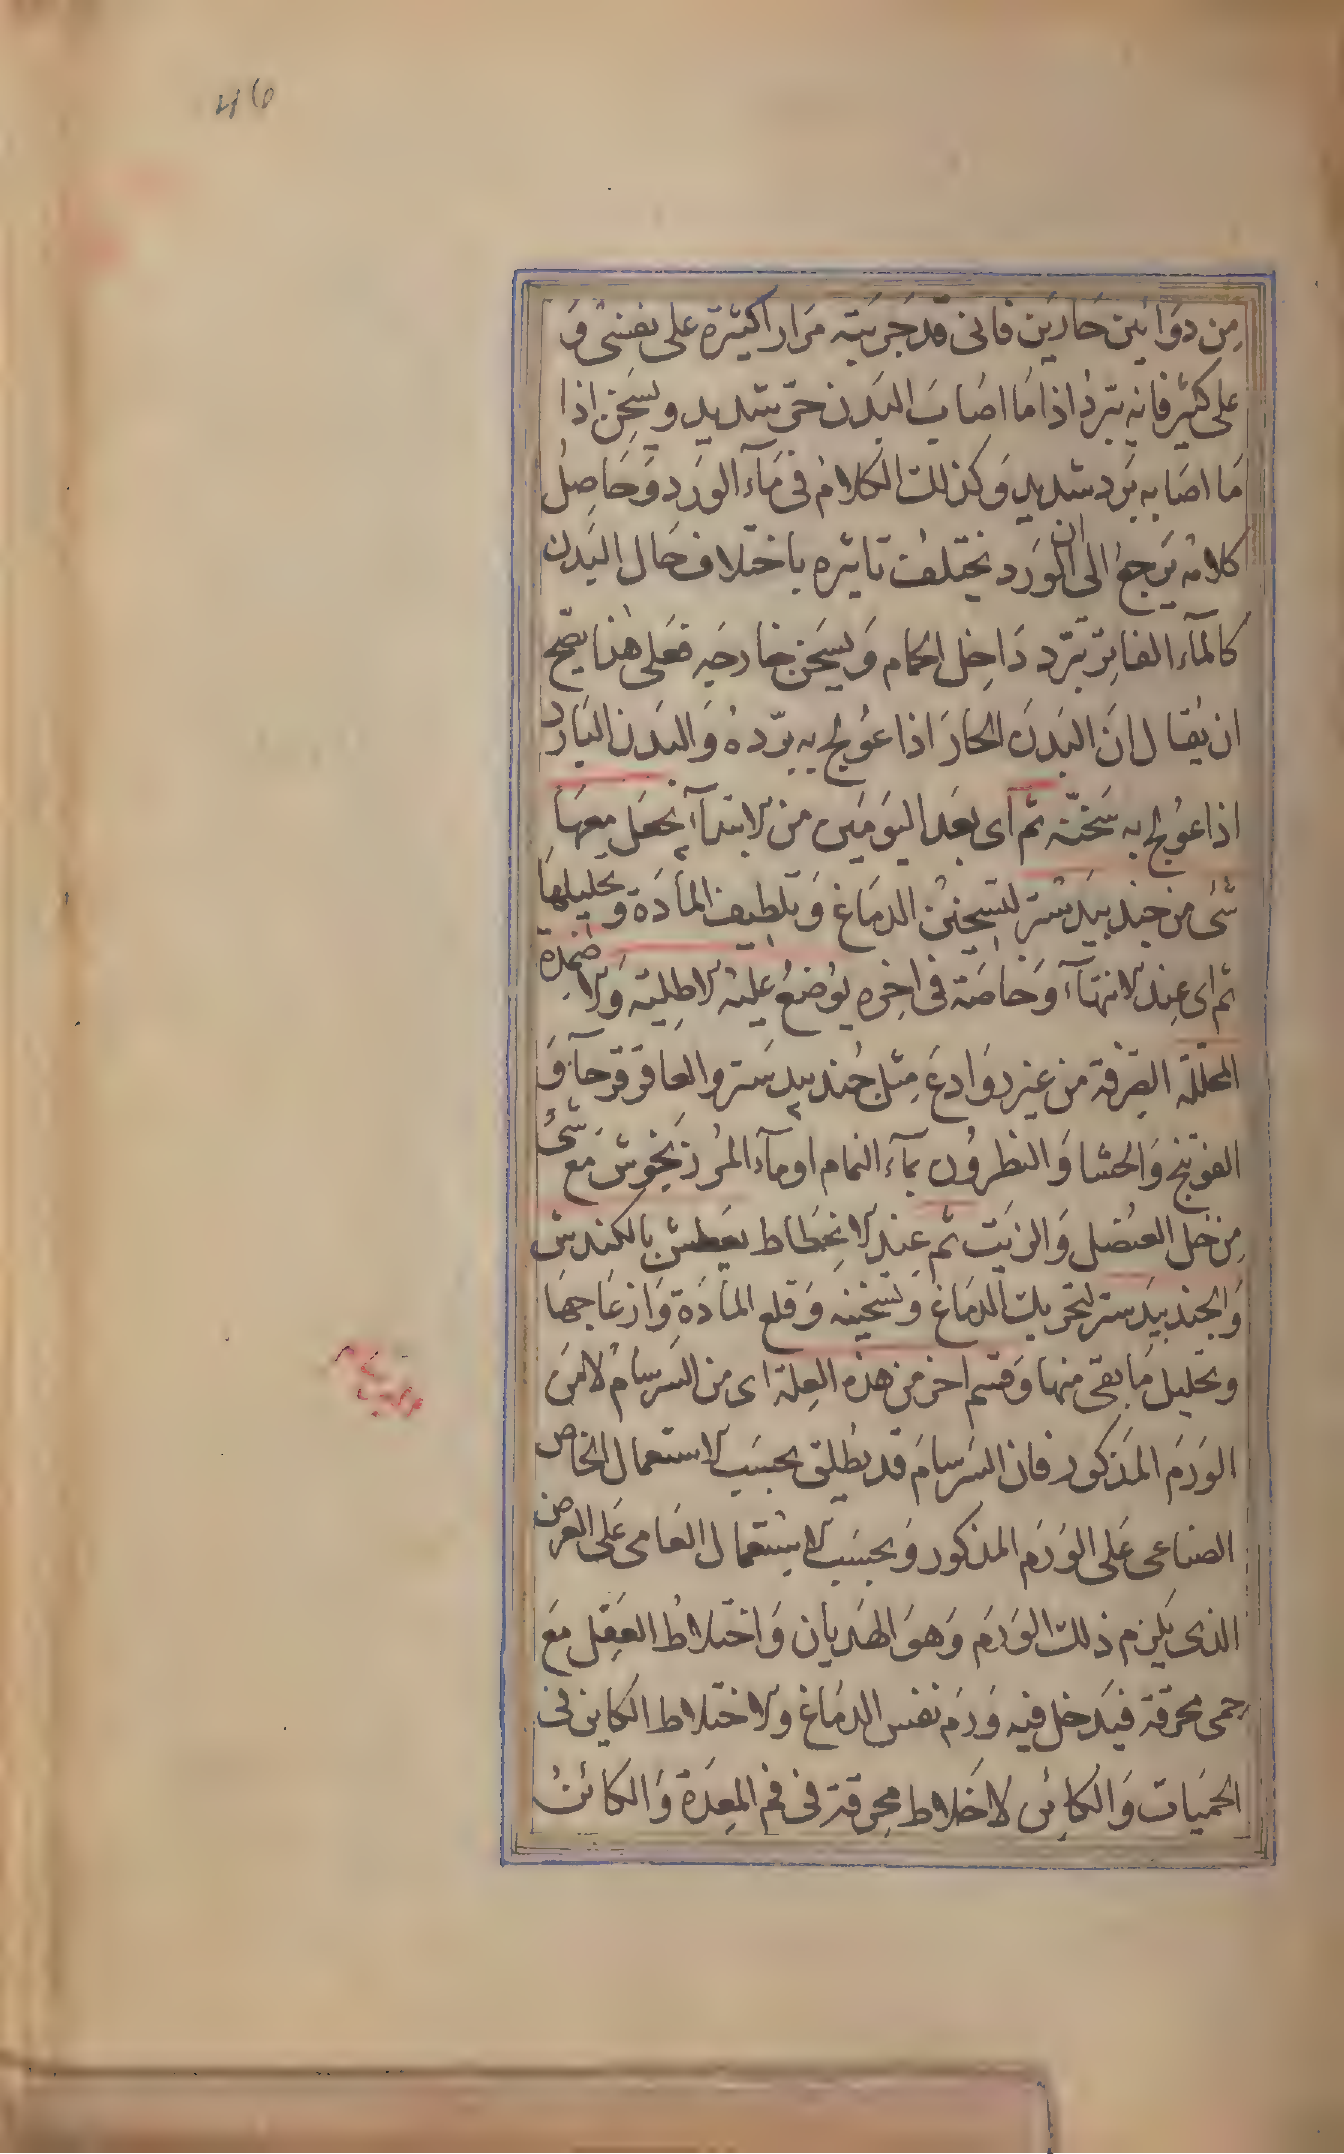 من دوائين حارين فانى قد جربته مرارا كثيرة على نفسى و
على كثير فانه يبرد اذا ما اصاب البدن حر شديد ويسخن اذا
ما اصابه برد شديد وكذلك الكلام فى مآء الورد وحاصل
كلامه يرجع الى ان الورد يختلف تاثيره باختلاف حال البدن
كالمآء الفاتر يبرد داخل الحمام ويسخن خارجه فعلى هذا يصح
ان يقال ان البدن الحار اذا عولج به برده والبدن البارد
اذا عولج به سخنه ثم اى بعد اليومين من الابتدآء يجعل معها
شى من جندبيدستر لتسخين الدماغ وتلطيف المادة وتحليلها
ثم اى عند الانتهآء وخاصة فى اخره يوضع عليه الاطلية والاضمدة
المحللة الصرفة من غير روادع مثل جندبيدستر والعاقرقرحآ و
الفوتنج والحشا والنطرون بمآء النمام او مآء المرزنجوش مع شئ
من خل العنصل والزيت ثم عند الانحطاط يعطش بالكندش
والجندبيدستر لتحريك الدماغ وتسخينه وقلع المادة وازعاجها
وتحليل ما بقى منها وقسم اخر من هذه العلة اى من السرسام لا من
الورم المذكور فان السرسام قد يطلق بحسب الاستعمال الخاص
الصناعى على الورم المذكور وبحسب الاستعمال العامى على العرض
الذى يلزم ذلك الورم وهو الهذيان واختلاط العقل مع
حمى محرقة فيدخل فيه ورم نفس الدماغ والاختلاط الكاين فى
الحميات والكائن لاخلاط محرقة فى فم المعدة والكائن